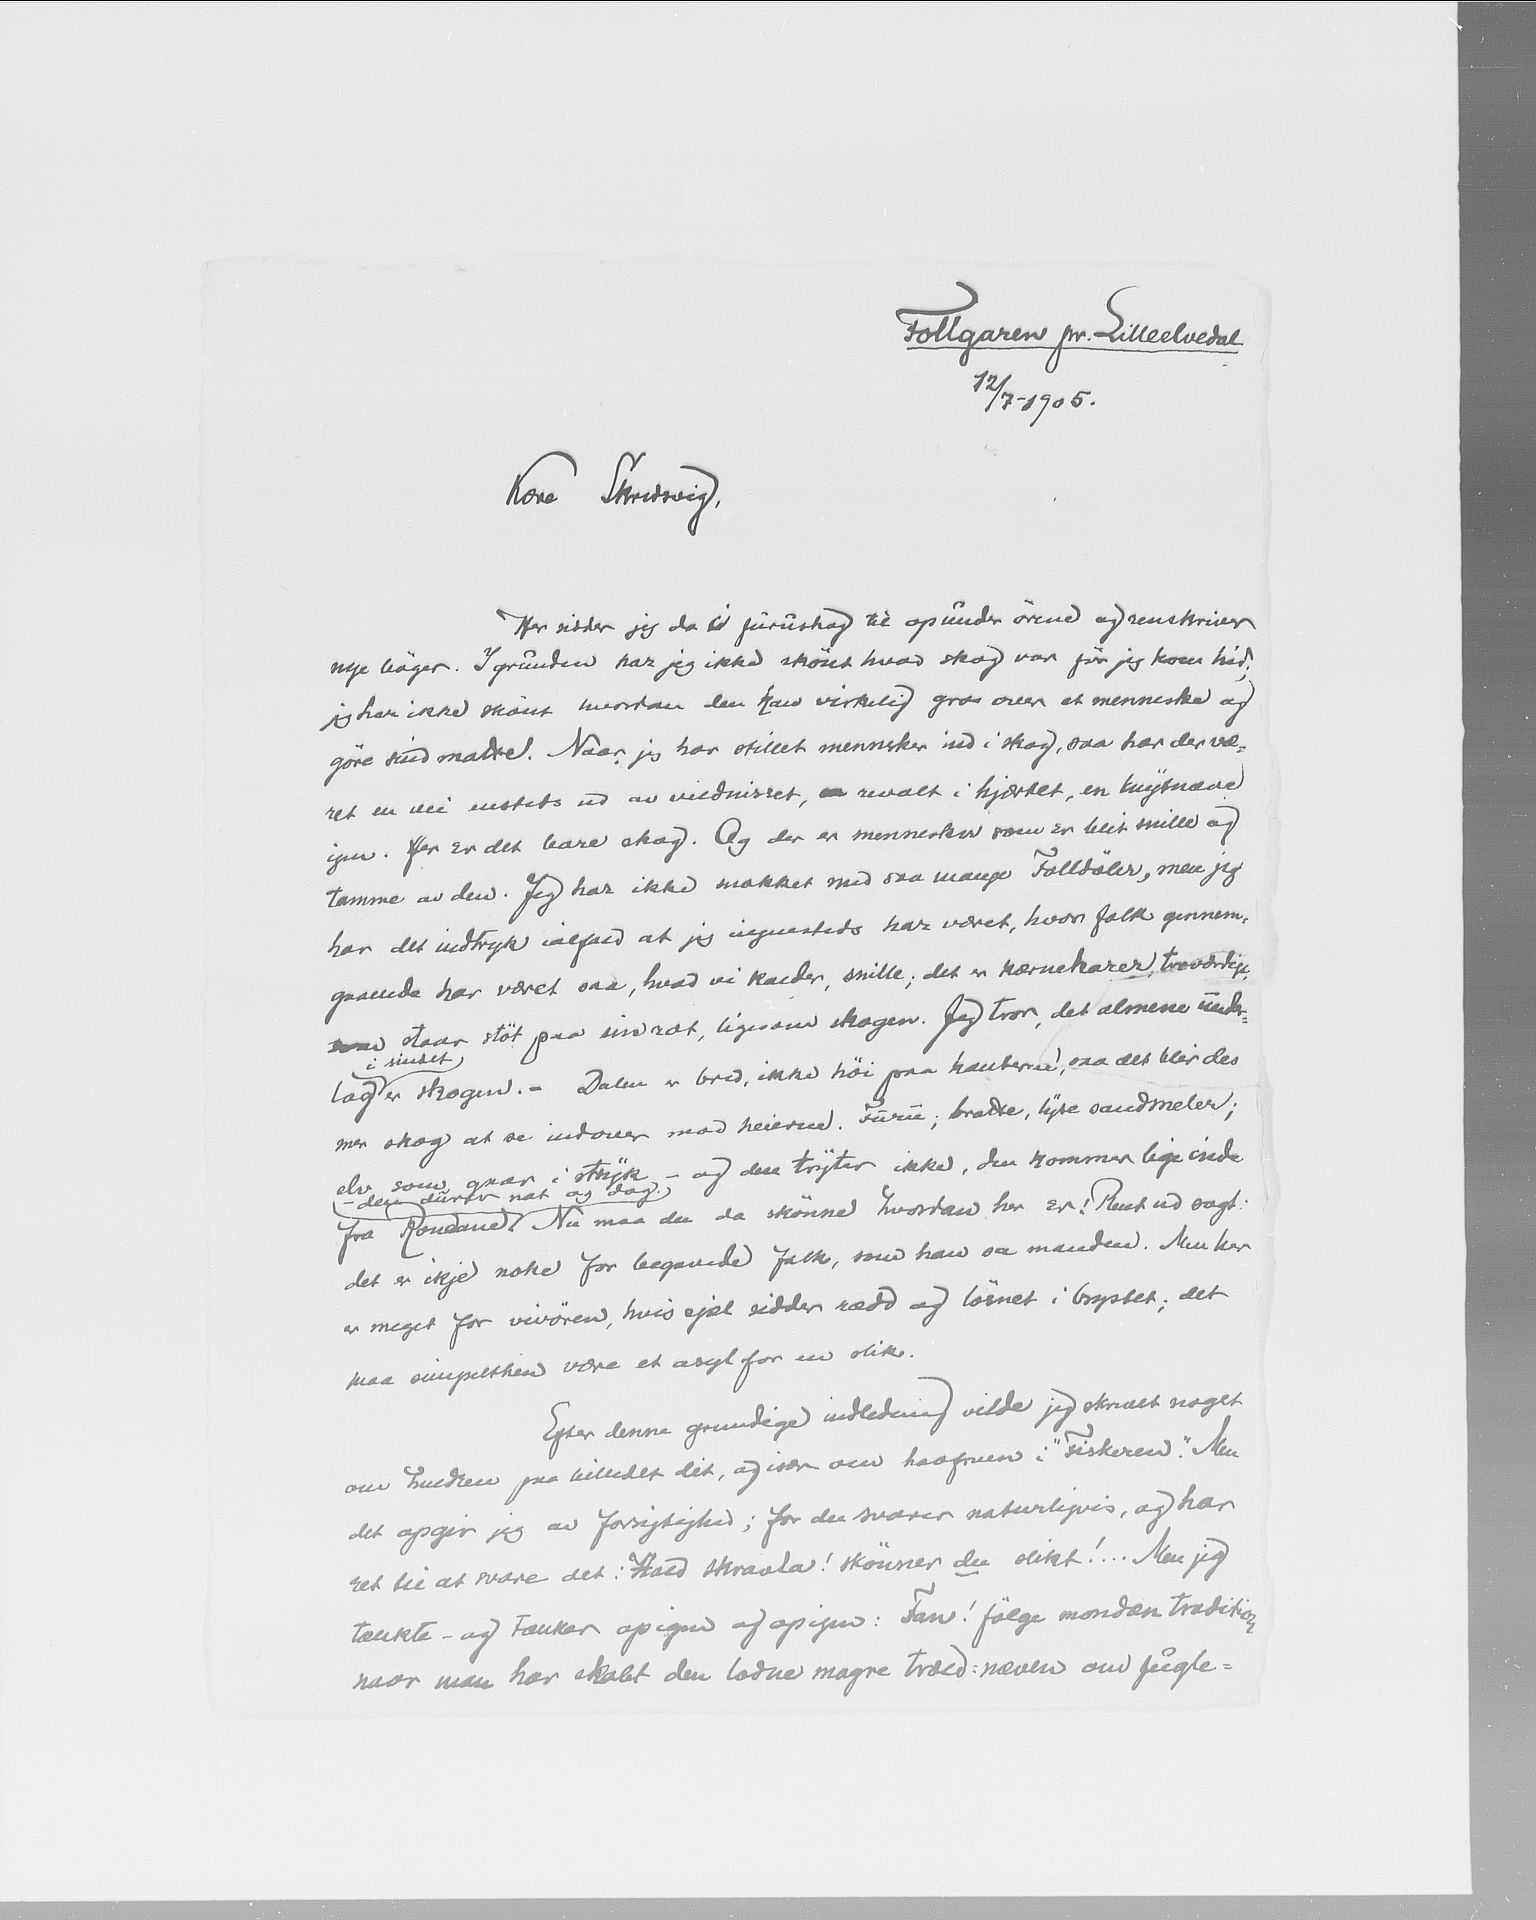 Follgaren pr. Lilleelvedal
12/7-1905.
Kære Skredsvig,
Her sidder jeg da i furuskog til opunder ørene og renskriver
nye bøger. I grunden har jeg ikke skönt hvad skog var før jeg kom hid;
jeg har ikke skönt hvordan den kan virkelig gro over et menneske og
göre sind matte. Naar jeg har stillet mennesker ind i skog, saa har der væ=
ret en vei ensteds ud av vildnisset, revolt i hjærtet, en knytnæve
igen. Her er det bare skog. Og der er mennesker som er blit snille og
tamme av den. Jeg har ikke snakket med saa mange Folldöler, men jeg
har det indtryk ialfald at jeg ingensteds har været, hvor folk gennem-
gaaende har været saa, hvad vi kalder, snille; det er kærnekarer, troværdige,
staar stöt paa sin rot, ligesom skogen. Jeg tror, det almene under=
lag i sindet er skogen. - Dalen er bred, ikke höi paa kanterne, saa det blir des
mer skog at se indover mod heiene. Furu; bratte, lyse sandmeler;
elv som gaar i stryk - og den tryter ikke, den kommer lige inde
fra Rondane - den durer nat og dag. Nu maa du da skönne hvordan her er! Rent ud sagt:
det er ikje noke for begavede folk, som han sa manden. Men her
er meget for vivören, hvis sjæl sidder rædd og lösnet i brystet; det
maa simpelthen være et asyl for en slik.
Efter denne grundige indledning vilde jeg skrevet noget
om luften paa billedet dit, og især om havfruen i "Fiskeren". Men
det opgir jeg av forsigtighed; for du svarer naturligvis, og har
ret til at svare det: Hald skravla! skönner du slikt!... Men jeg
tænkte - og tænker op igen og op igen: Fan! fölge mondæn tradition
naar man har skabt den lodne magre træld=næven om fugle=